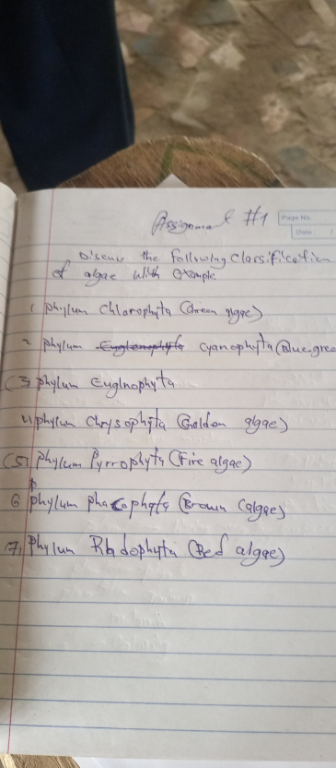 Assignment #1
Page No.
Date /
Discuss the following classification
of algae with example
1 phylum Chlorophyta (Green algae)
2 phylum Cyanophyta (Blue.gree
(3) phylum Euglnophyta
4) phylum Chrysophyta (Golden algae)
(5) phylum Pyrrophyta (Fire algae)
6 phylum phaeophyta (Brown (algae)
7, phylum Rhdophyta (Red algae)